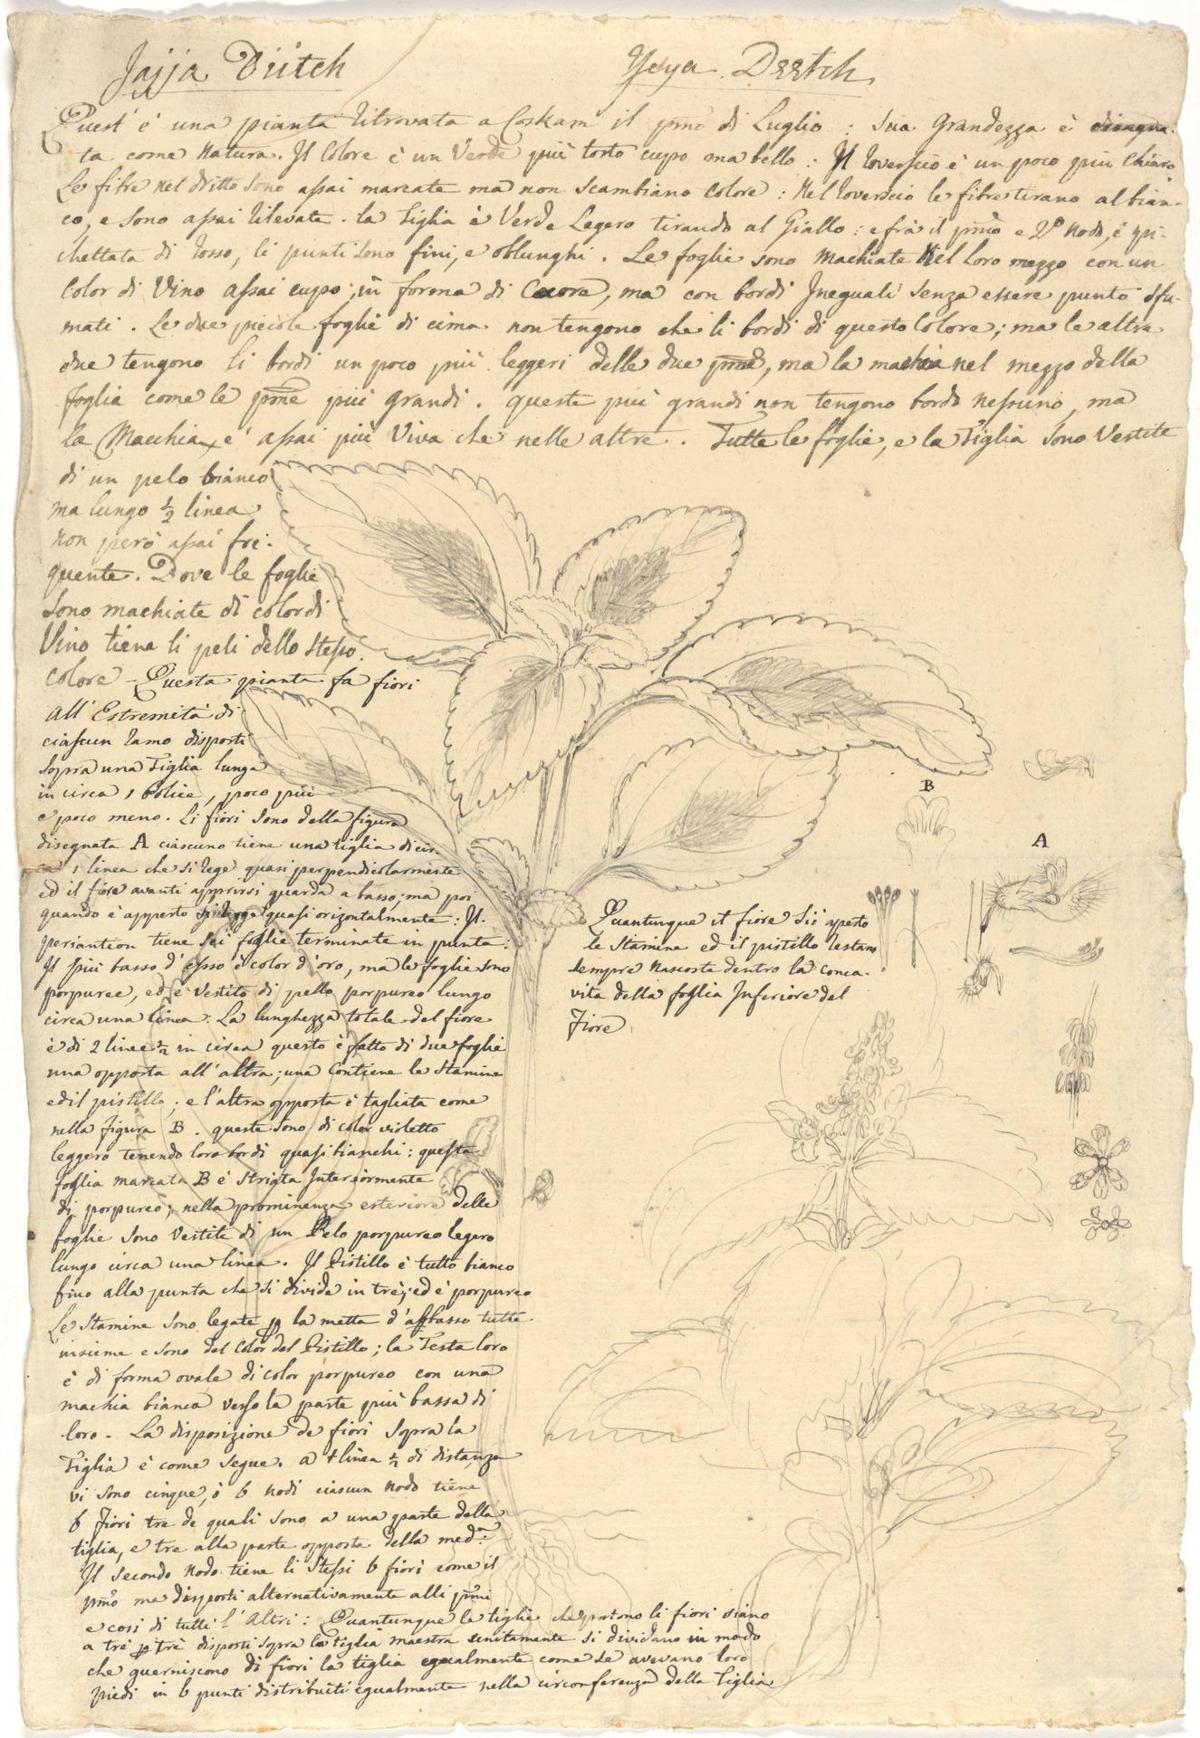 Jajja Driitch
Yeya Deetch
Quest' è una pianta ritrovata a Coskam il pmo di Luglio : Sua Grandezza è disegna-
ta come Natura. Il Colore è un Verde più tosto cupo ma bello : Il Roverscio è un poco più chiaro
Le fibre nel dritto sono assai marcate ma non scambiano Colore : Nel Roverscio le fibre tirano al bian-
co, e sono assai rilevate. la Tiglia è Verde Legero tirando al Giallo : e frà il pmo e 2do Nodo, è pi-
chettata di rosso, li punti sono fini, e oblunghi. Le foglie sono Machiate Nel Loro mezzo con un
Color di Vino assai cupo, in forma di Cuore, ma con bordi Ineguali senza essere punto sfu-
mati. Le due piccole foglie di cima non tengono che li bordi di questo Colore; ma le altre
due tengono li bordi un poco più leggeri delle due pme, ma la machia nel mezzo della
foglia come le pme più grandi. queste più grandi non tengono bordo nessuno, ma
la Macchia e' assai più Viva che nelle altre. Tutte le foglie, e la Tiglia sono Vestite
di un pelo bianco
ma lungo ½ linea
non però assai fre-
quente. Dove le foglie
sono machiate di color di
Vino tiene li peli dello stesso
colore - Questa pianta fa fiori
all' Estremità di
ciascun ramo disposti
sopra una Tiglia lunga
in circa 1 Police, poco più
e poco meno. Li fiori sono della figura
disegnata A ciascuno tiene una tiglia di cir
ca 1 linea che si rege quasi perpendicolarmente
ed il fiore avanti apprirsi guarda a basso; ma poi
quando è apperto quasi orizontalmente. Il
periantion tiene sei foglie terminate in punta.
Il più basso d' esso è color d'oro, ma le foglie sono
porpuree, ed è Vestito di pello porpureo lungo
circa una linea. La lunghezza totale del fiore
è di 2 linee ½ in circa questo è fatto di due foglie
una opposta all' altra; una Contiene le Stamine
ed il pistillo; e l'altra opposta è tagliata come
nella figura B. queste sono di color violetto
leggero tenendo loro bordi quasi bianchi: questa
foglia marcata B è Striata Interiormente
di porpureo; nella prominenza esteriore delle
foglie sono Vestite di un Pelo porpureo legero
lungo circa una linea. Il Pistillo è tutto bianco
fino alla punta che si divide in trè, ed è porpureo
Le Stamine sono legate p la metta d'abbasso tutte
insieme e sono del Color del Pistillo; la Testa loro
è di forma ovale di color porpureo con una
machia bianca verso la parte più bassa di
loro. La disposizione de fiori sopra la
Tiglia è come segue. a 1 linea ½ di distanza
vi sono cinque, ò 6 nodi ciascun nodo tiene
6 Fiori tre de quali sono a una parte della
tiglia, e tre alla parte opposta della meda.
Il secondo Nodo tiene li Stessi 6 fiori come il
pmo ma disposti alternativamente alli pmi
e così di tutti l' Altri : Quantunque le tiglie che portono li fiori siano
a tré p tré disposti sopra la tiglia maestra unitamente si dividano in modo
che guerniscono di fiori la tiglia egualmente come se avevano loro
piedi in 6 punti distribuiti egualmente nella circonferenza della Tiglia
B
A
Quantunque il fiore sii aperto
le Stamine ed il pistillo restano
sempre nascoste dentro la conca-
vità della foglia Inferiore del
Fiore